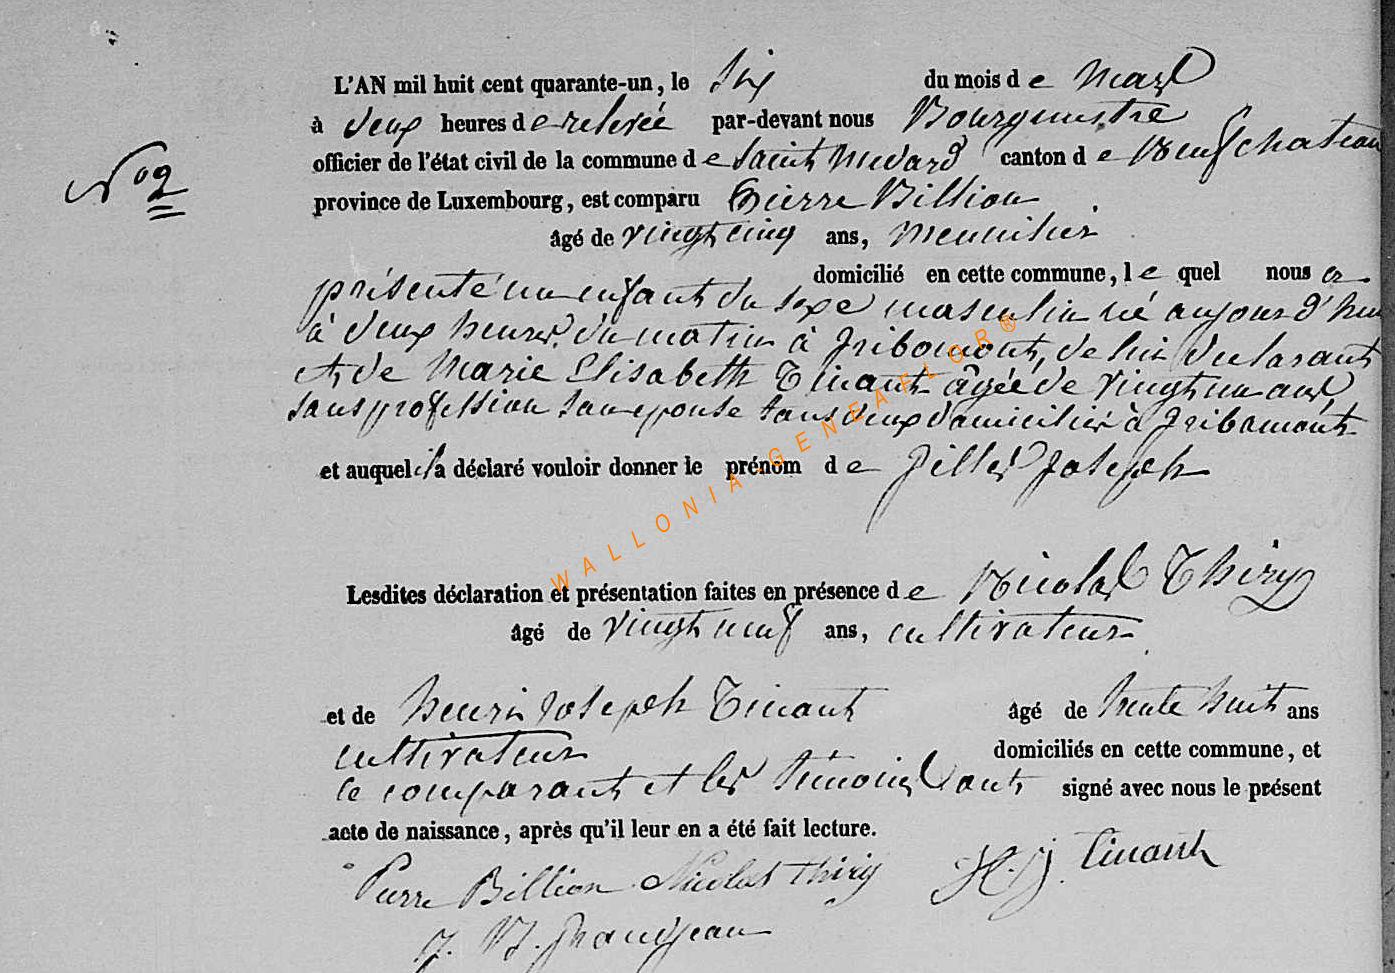 L'AN mil huit cent quarante-un, le six du mois de Mars
à deux heures de relevée par-devant nous Bourgmestre
officier de l'état civil de la commune de Saint Medard canton de Neufchateau
N° 2
province de Luxembourg, est comparu Pierre Billion
âgé de vingt cinq ans, Meunier
domicilié en cette commune, lequel nous a
présenté un enfant du sexe masculin né aujourd'hui
à deux heures du matin à Gribomont, de lui declarant
et de Marie Elisabeth Tinant âgée de vingt un ans,
sans profession son epouse tous deux domiciliés à Gribomont
et auquel il a déclaré vouloir donner le prénom de Gilles Joseph
WALLONIA-GENEAFLOR®
Lesdites déclaration et présentation faites en présence de Nicolas Thiry
âgé de vingt neuf ans, cultivateur
et de henri Joseph Tinant âgé de trente huit ans
cultivateur domiciliés en cette commune, et
le comparant et les temoins ont signé avec nous le présent
acte de naissance, après qu'il leur en a été fait lecture.
Pierre Billion Nicolas thiry H. J. Tinant
Grandjean